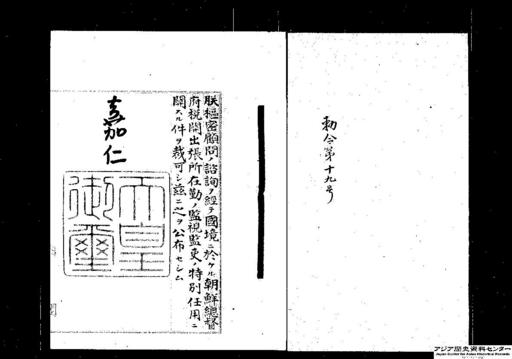 勅令第十九号
朕枢密顧問ノ諮詢ヲ経テ国境ニ於ケル朝鮮総督
府税関出張所在勤ノ監視監吏ノ特別任用ニ
関スル件ヲ裁可シ茲ニ之ヲ公布セシム
嘉仁
天皇
御璽
アジア歴史資料センター
Japan Center for Asian Historical Records